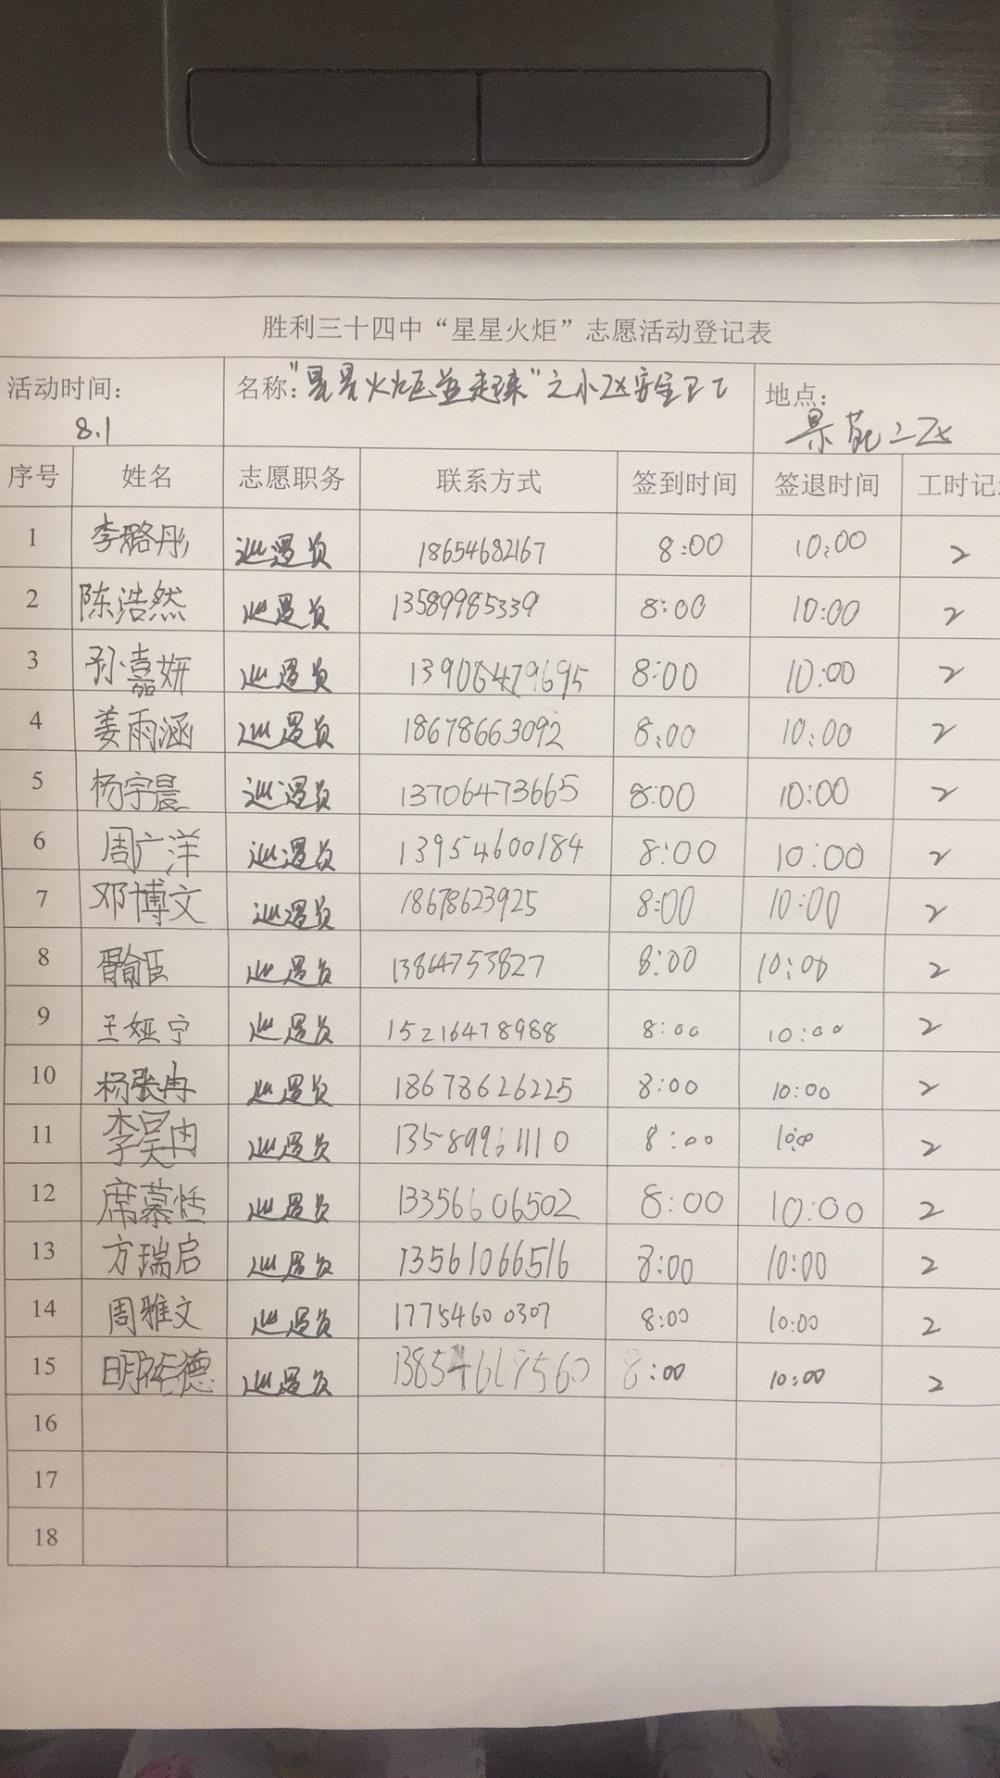 胜利三十四中“星星火炬”志愿活动登记表
活动时间： 名称：“星星火炬益起来”之小区安全卫士 地点：
8.1 景苑二区
序号 姓名 志愿职务 联系方式 签到时间 签退时间 工时记
1 李璐彤 巡逻员 18654682167 8:00 10:00 2
2 陈浩然 巡逻员 13589985339 8:00 10:00 2
3 孙嘉妍 巡逻员 13906479695 8:00 10:00 2
4 姜雨涵 巡逻员 18678663092 8:00 10:00 2
5 杨宇晨 巡逻员 13706473665 8:00 10:00 2
6 周广洋 巡逻员 13954600184 8:00 10:00 2
7 邓博文 巡逻员 18678623925 8:00 10:00 2
8 巡逻员 13864753827 8:00 10:00 2
9 王娅宁 巡逻员 15216478988 8:00 10:00 2
10 杨张冉 巡逻员 18678626225 8:00 10:00 2
11 李昊冉 巡逻员 13589961110 8:00 10:00 2
12 席慕恬 巡逻员 13356606502 8:00 10:00 2
13 方瑞启 巡逻员 13561066516 8:00 10:00 2
14 周雅文 巡逻员 17754600307 8:00 10:00 2
15 巡逻员 8:00 10:00 2
16
17
18